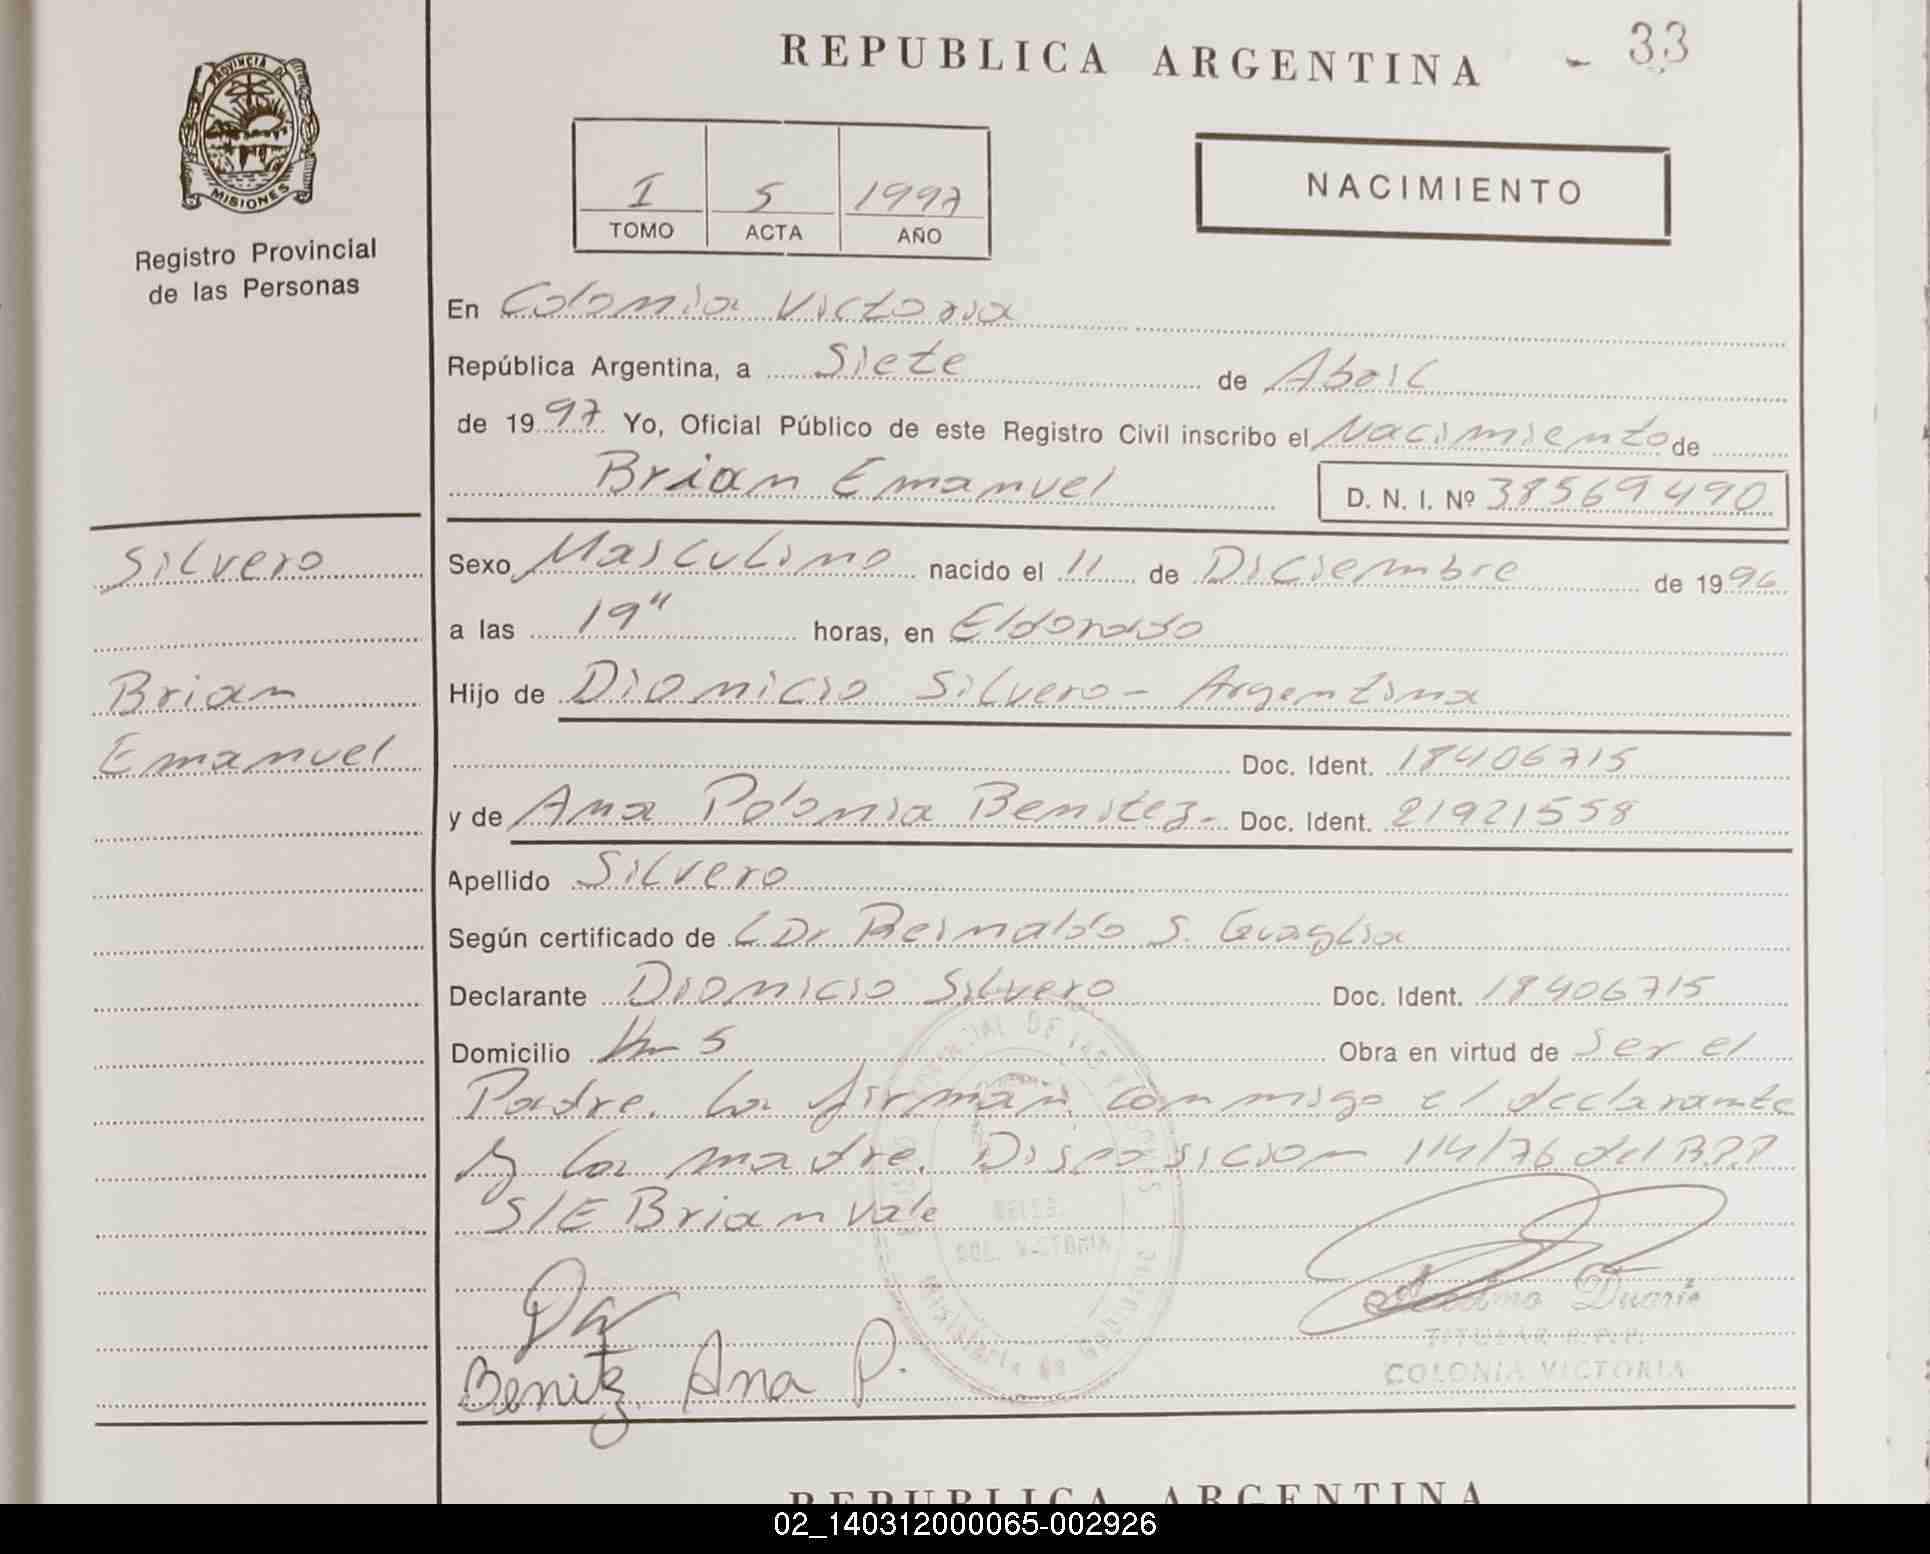 REPUBLICA ARGENTINA - 33
PROVINCIA DE
MISIONES
Registro Provincial
de las Personas
I 5 1997
TOMO ACTA AÑO
NACIMIENTO
En Colonia Victoria
República Argentina, a Siete de Abril
de 1997 Yo, Oficial Público de este Registro Civil inscribo el Nacimiento de
Brian Emanuel D. N. I. Nº 38569490
Silvero
Brian
Emanuel
Sexo Masculino nacido el 11 de Diciembre de 1996
a las 19" horas, en Eldorado
Hijo de Dionicio Silvero - Argentina
Doc. Ident. 18406715
y de Ana Polonia Benitez - Doc. Ident. 21921558
Apellido Silvero
Según certificado de Dr Reinaldo S. Guaglia
Declarante Dionicio Silvero Doc. Ident. 18406715
Domicilio Km 5 Obra en virtud de Ser el
Padre. La firman conmigo el declarante
y la madre. Disposicion 114/76 del R.P.P
S/E Brian vale
COL. VICTORIA
Ministerio de Gobierno
Duarte
TITULAR R.P.P.
COLONIA VICTORIA
Benitez Ana P.
REPUBLICA ARGENTINA
02_140312000065-002926